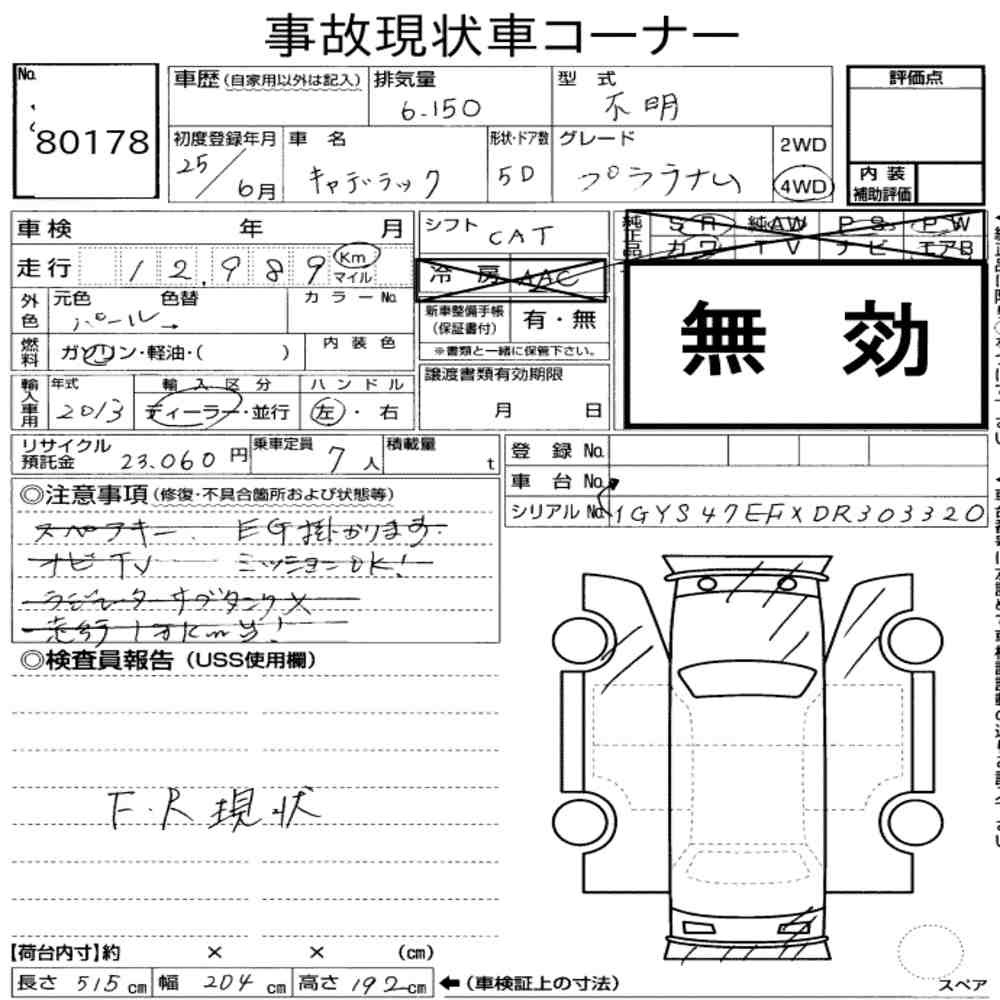 事故現状車コーナー
No.
80178
車歴(自家用以外は記入)
排気量
6.150
型 式
不明
評価点
初度登録年月
25/6月
車 名
キャデラック
形状・ドア数
5D
グレード
プラチナム
2WD
4WD
内 装
補助評価
車検 年 月
シフト
CAT
純正品
SR 純AW PS PW
カワ TV ナビ エアB
走行 12,989
Km
マイル
冷 房 AAC
無 効
外色
元色 色替
パール→
カラーNo.
新車整備手帳
(保証書付)
有・無
※書類と一緒に保管下さい。
燃料
ガソリン・軽油・( )
内 装 色
輸入車用
年式
2013
輸 入 区 分
ディーラー・並行
ハ ン ド ル
左・右
譲渡書類有効期限
月 日
リサイクル
預託金
23.060円
乗車定員
7人
積載量
t
登 録 No.
車 台 No.
シリアル No. 1GYS47EFXDR303320
◎注意事項(修復・不具合箇所および状態等)
スペアキー. EG掛かります.
ナビTV ミッションOK!
ラジエーターサブタンク×
走行1万Km台!
◎検査員報告(USS使用欄)
F.R現状
【荷台内寸】約 × × (cm)
長さ 515cm 幅 204cm 高さ 192cm ←(車検証上の寸法)
スペア